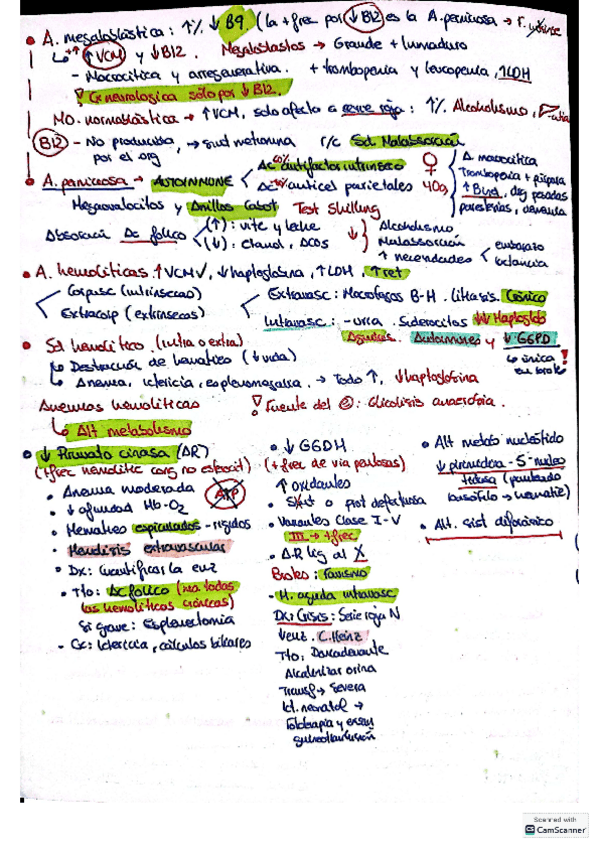 • A. megaloblástica: ↑% ↓ B9. (la +frec por ↓B12 es la A. perniciosa →
↳ ++ ↑VCM y ↓B12. Megaloblastos → Grande + inmaduro
- Macrocítica y arregenerativa. + trombopenia y leucopenia, ↑LDH
! Cx neurologica solo por ↓ B12.
MO. normoblástica → ↑VCM, solo afecta a serie roja: ↑% Alcoholismo,
B12 - No producida por el org → r/c Sd. Malabsorción
• A. perniciosa → AUTOINMUNE < Ac 60% antifactor intrinseco
Ac anticel parietales ♀ 40a
A. macrocítica
Trombopenia + púrpura
↑ Bind, deg
parestesias, demencia
Megaovalocitos y Anillos Cabot Test Shilling
Absorción Ac fólico < (↑): vitc y leche
(↓): etanol, ACOS
↓ } Alcoholismo,
Malabsorción
↑ necesidades < embarazo
lactancia
• A. hemolíticas ↑VCM✓, ↓haptoglobina, ↑LDH, ↑ret
Corpusc (intrinsecas)
Extracorp (extrinsecas)
Extravasc: Macrofagos B-H. Litiasis. Crónico
Intravasc: Siderocitos ↓↓ Haptoglob
Agudas. Autoinmunes y ↓ G6PD
↳ única en brote !
• Sd hemolítico. (intra o extra)
↳ Destrucción de hematies (↓ vida)
↳ Anemia, ictericia, esplenomegalia. → Todo ↑, ↓haptoglobina
Anemias hemolíticas
! Fuente del e: Glicolisis anaerobia.
↳ Alt metabolismo
• ↓ Piruvato cinasa (AR)
(+frec hemolític cong no esferocit)
• Anemia moderada
ATP
• ↓ afinidad Hb-O2
• Hematies espiculados - rígidos
• Hemólisis extravascular
• Dx: Cuantificar la enz
• Tto: Ac fólico (ixa todas las hemolíticas crónicas)
Si grave: Esplenectomia
- Cx: Ictericia, cálculos biliares
• ↓ G6DH
(+ frec de via pentosas)
↑ oxidantes
• Sínt o prot defectuosa
• Variantes Clase I-V
III → +frec
• AR lig al X
Brotes: Favismo
- H. aguda intravasc
Dx: Crisis: Serie roja N
↓enz. C. Heinz
Tto: Desencadenante
Alcalinizar orina
Transf → Severa
Ict. neonatal →
Fototerapia y exanguinotransfusión
• Alt metab nucleótido
↓ pirimidina - 5' nucleotidasa
• Alt. sist diforámico
Scanned with
CamScanner